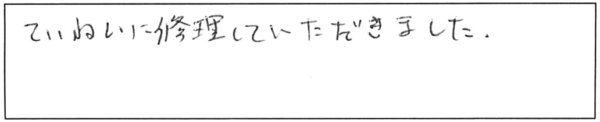 ていねいに修理していただきました.